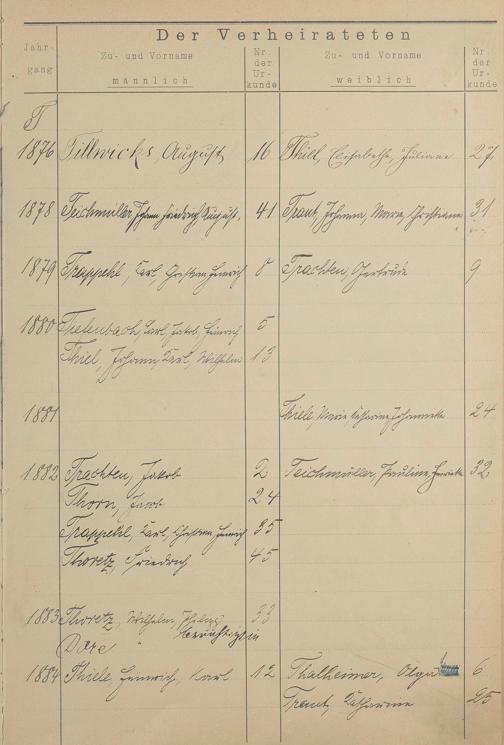 Der Verheirateten
Jahr-
gang
Zu- und Vorname
männlich
Nr.
der
Ur-
kunde
Zu- und Vorname
weiblich
Nr.
der
Ur-
kunde
T
1876 Tillwicks, August 16 Thiel, Elisabethe, Juliane 27
1878 Teichmüller, Johann Friedrich August, 41 Traut, Johanna, Marie, Christiane 31
1879 Trappehl, Carl, Christian Heinrich 8 Trachten, Gertrude 9
1880 Tiefenbach, Carl, Jakob, Heinrich 5
Thiel, Johann, Karl, Wilhelm 13
1881 Thiele, Marie, Catharine, Johannette 24
1882 Trachten, Jakob 2 Teichmüller, Pauline, Henriette 32
Thorn, Jacob 24
Trappehl, Carl, Christian, Heinrich 35
Thoretz, Friedrich 45
1883 Thoretz, Wilhelm, 33
1884 Thiele, Heinrich, Karl 12 Thalheimer, Olga 6
Traut, Katharine 25